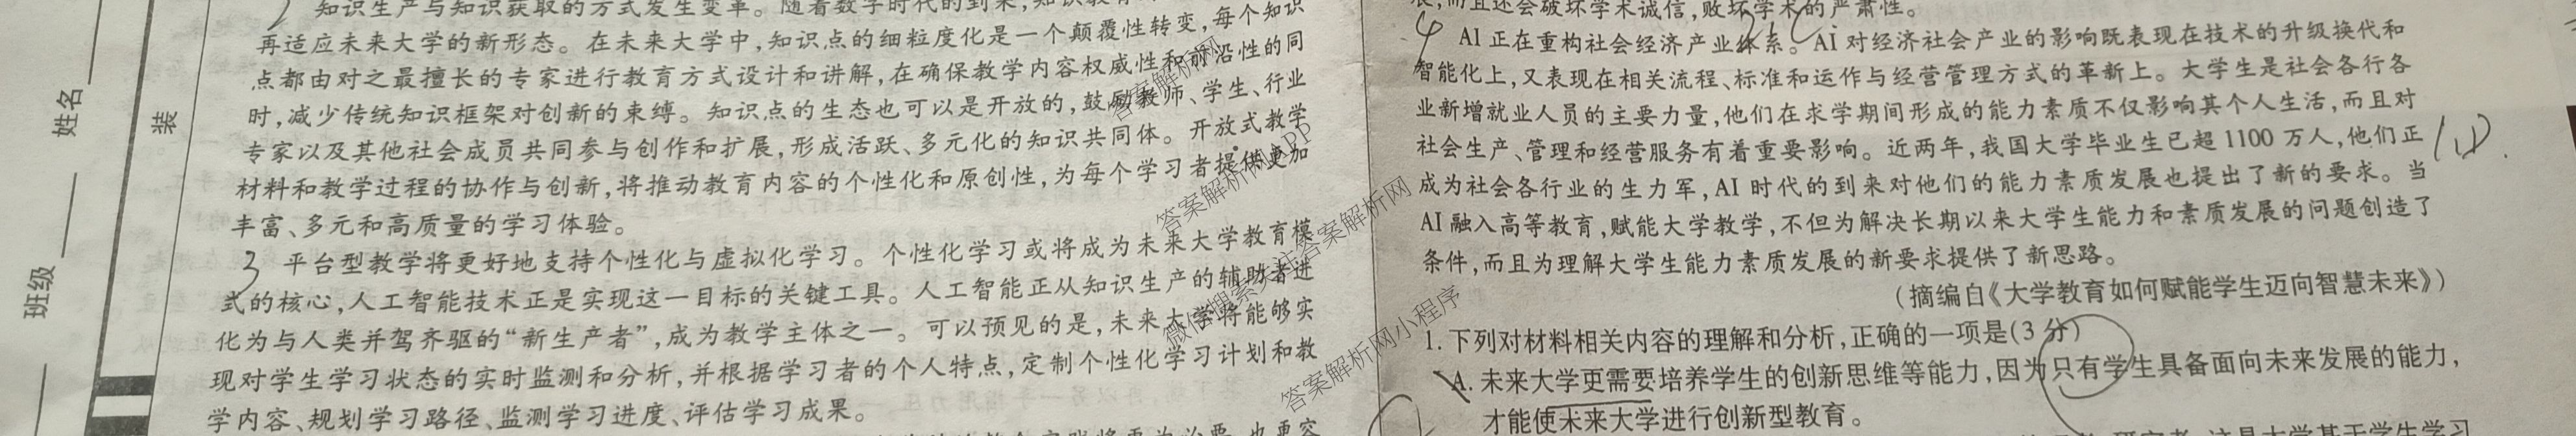 知识生产与知识获取的方式发生变革。随着数字时代的到来,知识教育
再适应未来大学的新形态。在未来大学中,知识点的细粒度化是一个颠覆性转变,每个知识
点都由对之最擅长的专家进行教育方式设计和讲解,在确保教学内容权威性和前沿性的同
时,减少传统知识框架对创新的束缚。知识点的生态也可以是开放的,鼓励教师、学生、行业
专家以及其他社会成员共同参与创作和扩展,形成活跃、多元化的知识共同体。开放式教学
材料和教学过程的协作与创新,将推动教育内容的个性化和原创性,为每个学习者提供更加
丰富、多元和高质量的学习体验。
3 平台型教学将更好地支持个性化与虚拟化学习。个性化学习或将成为未来大学教育模
式的核心,人工智能技术正是实现这一目标的关键工具。人工智能正从知识生产的辅助者进
化为与人类并驾齐驱的“新生产者”,成为教学主体之一。可以预见的是,未来大学将能够实
现对学生学习状态的实时监测和分析,并根据学习者的个人特点,定制个性化学习计划和教
学内容、规划学习路径、监测学习进度、评估学习成果。
姓名
班级
装
展,而且还会破坏学术诚信,败坏学术的严肃性。
4 AI 正在重构社会经济产业体系。AI 对经济社会产业的影响既表现在技术的升级换代和
智能化上,又表现在相关流程、标准和运作与经营管理方式的革新上。大学生是社会各行各
业新增就业人员的主要力量,他们在求学期间形成的能力素质不仅影响其个人生活,而且对
社会生产、管理和经营服务有着重要影响。近两年,我国大学毕业生已超 1100 万人,他们正
成为社会各行业的生力军,AI 时代的到来对他们的能力素质发展也提出了新的要求。当
AI 融入高等教育,赋能大学教学,不但为解决长期以来大学生能力和素质发展的问题创造了
条件,而且为理解大学生能力素质发展的新要求提供了新思路。
(摘编自《大学教育如何赋能学生迈向智慧未来》)
1. 下列对材料相关内容的理解和分析,正确的一项是(3 分)
A. 未来大学更需要培养学生的创新思维等能力,因为只有学生具备面向未来发展的能力,
才能使未来大学进行创新型教育。
答案解析网
答案解析网APP
微信搜索关注答案解析网
答案解析网小程序